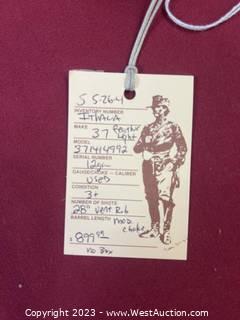 S 5-26-4
INVENTORY NUMBER
ITHACA
MAKE
37 feather light
MODEL
371414992
SERIAL NUMBER
12ga
GAUGE/CHOKE — CALIBER
used
CONDITION
3+
NUMBER OF SHOTS
28" vent Rib
BARREL LENGTH mod choke
$899.95
No Box
Copyright 2023 - www.WestAuction.com